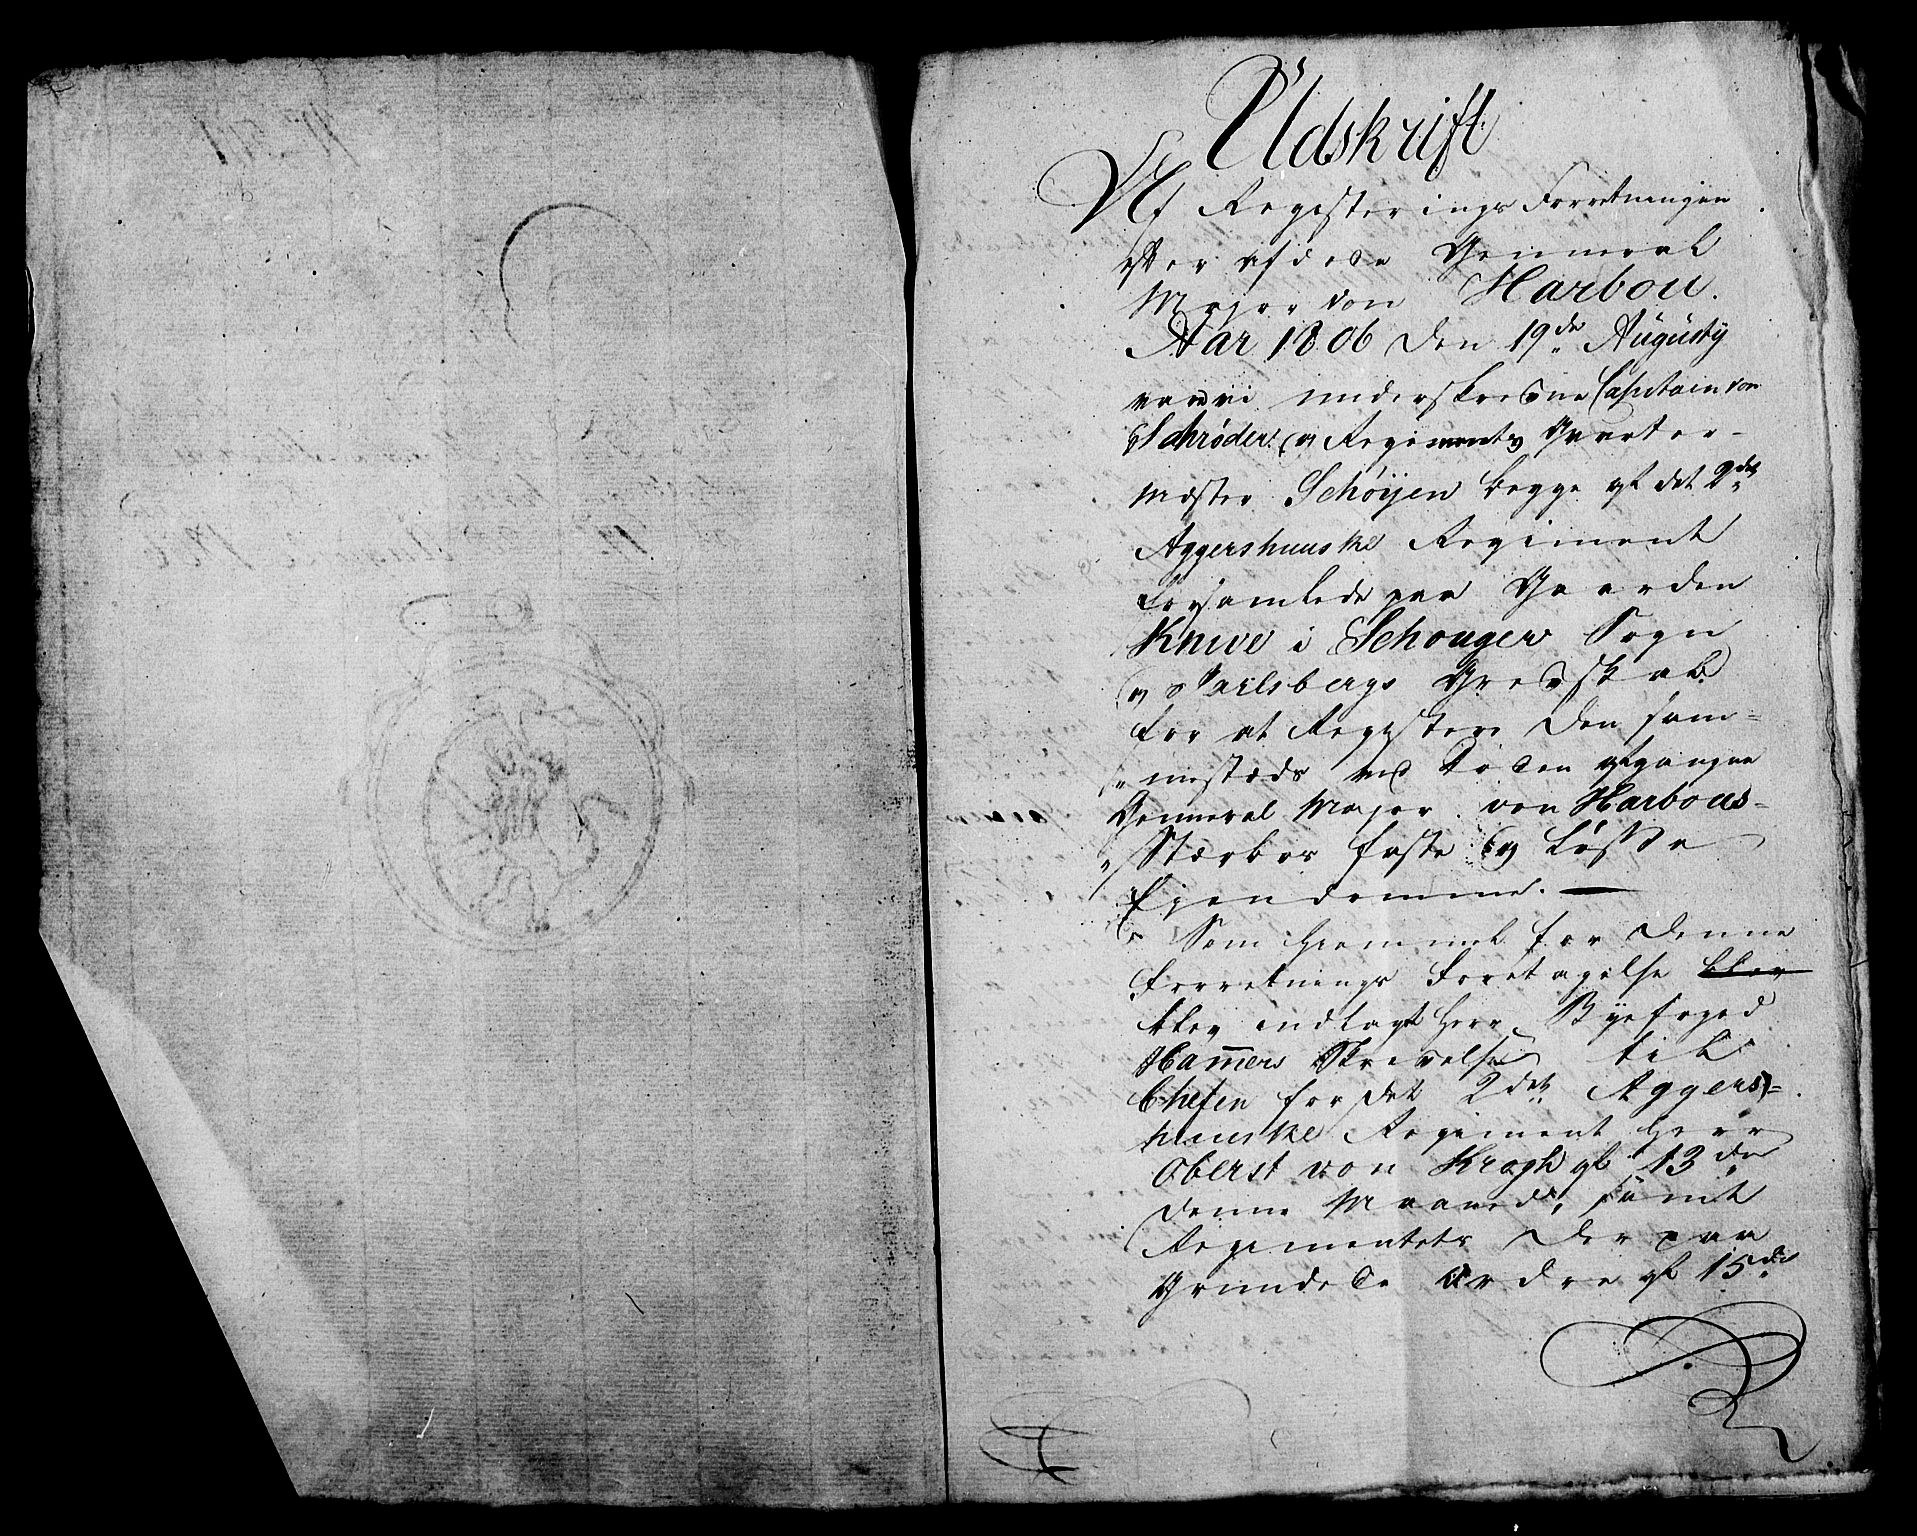 Udskrift
Af Registerings Forretningen
efter afdøde General
Major von Harbou.
Aar 1806 den 19de Augusty
vare vi underskrevne Capitaen von
Schrøder og Regiments Qvarteer-
mester Schöyen begge af det 2det
Aggershuuske Regiment
forsamlede paa Gaarden
Knive i Schouger Sogn
og Jarlsbergs Grevskab
for at Registere den sam-
mestæds ved Døden afgangne
General Major von Harbous-
Stærboes faste og Løsse
Ejendomme. —
Som Hiemmel for denne
Forretnings Foretagelse blev
blev indlagt Herr Byefoged
Hammers Skrivelse til
Chefen for det 2det Aggers-
huuske Regiment Herr
Oberst von Krogh af 13de
denne Maaned, samt
Regimentets derpaa
grundede Ordre af 15de